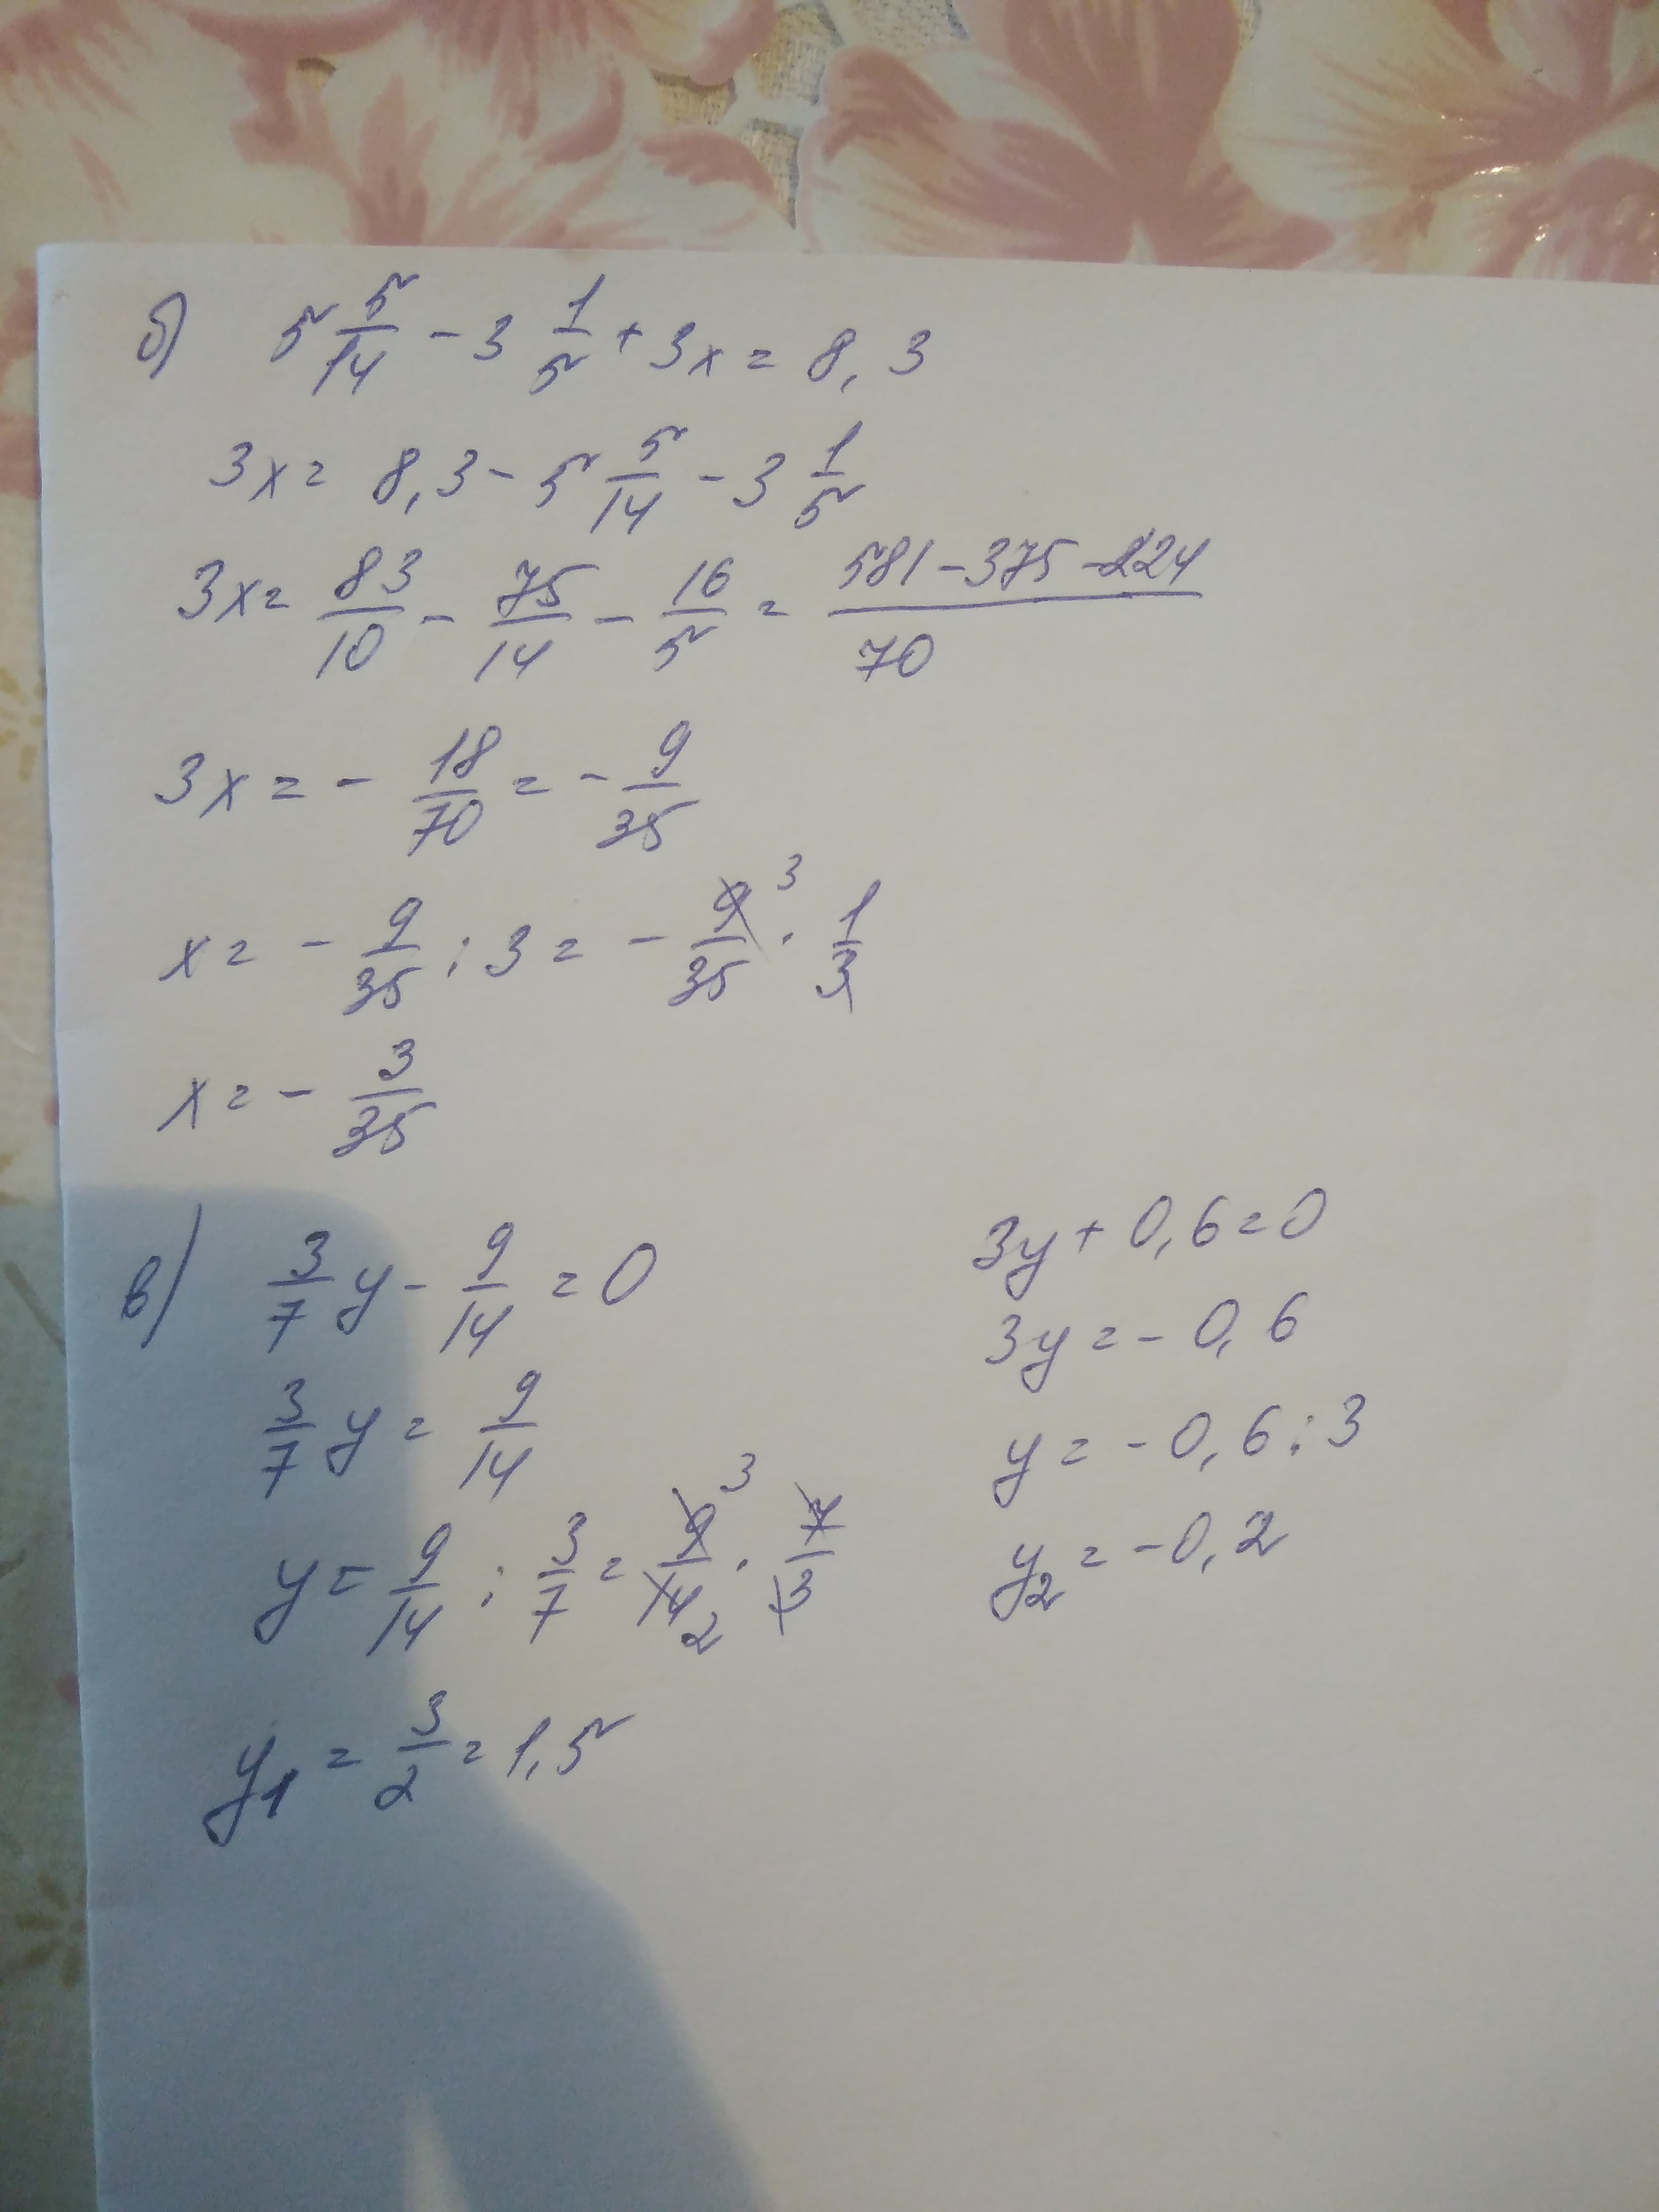 б) 5 5/14 - 3 1/5 + 3x = 8,3
3x = 8,3 - 5 5/14 - 3 1/5
3x = 83/10 - 75/14 - 16/5 = (581 - 375 - 224)/70
3x = - 18/70 = - 9/35
x = - 9/35 : 3 = - 9/35 3 · 1/3
x = - 3/35
в) 3/7 y - 9/14 = 0
3/7 y = 9/14
y = 9/14 : 3/7 = 9/14 3 2 · 7/3
y₁ = 3/2 = 1,5
3y + 0,6 = 0
3y = - 0,6
y = - 0,6 : 3
y₂ = - 0,2